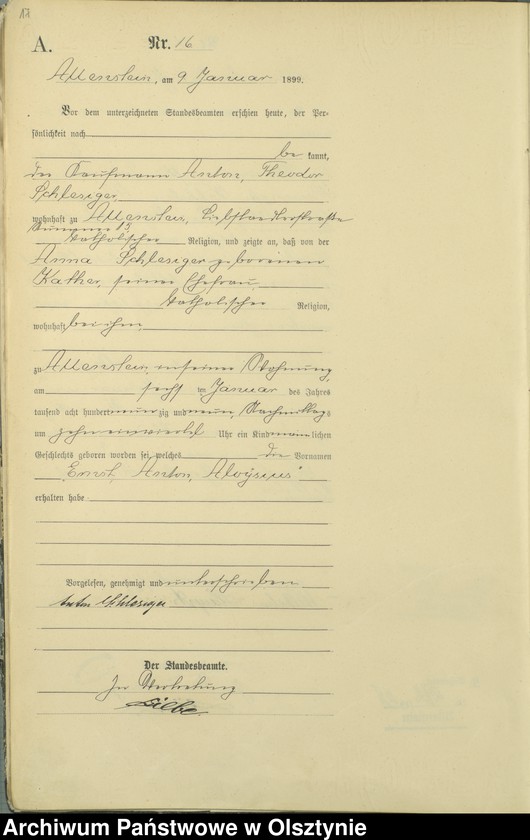 17
A.
Nr. 16
Allenstein, am 9 Januar 1899.
Vor dem unterzeichneten Standesbeamten erschien heute, der Per-
sönlichkeit nach
be kannt,
der Kaufmann Anton, Theodor
Schlesiger
wohnhaft zu Allenstein, Liebstaedterstraße
Nummer 13
katholischer Religion, und zeigte an, daß von der
Anna Schlesiger geborenen
Kather, seiner Ehefrau,
katholischer Religion,
wohnhaft bei ihm
zu Allenstein, in seiner Wohnung,
am sechs im Januar des Jahres
tausend acht hundert neun zig und neun, Nachmittags
um zehn einviertel Uhr ein Kind männlichen
Geschlechts geboren worden sei, welches die Vornamen
"Ernst, Anton, Aloÿsius"
erhalten habe
Vorgelesen, genehmigt und unterschrieben
Anton Schlesiger
Der Standesbeamte.
In Vertretung
Archiwum Państwowe w Olsztynie